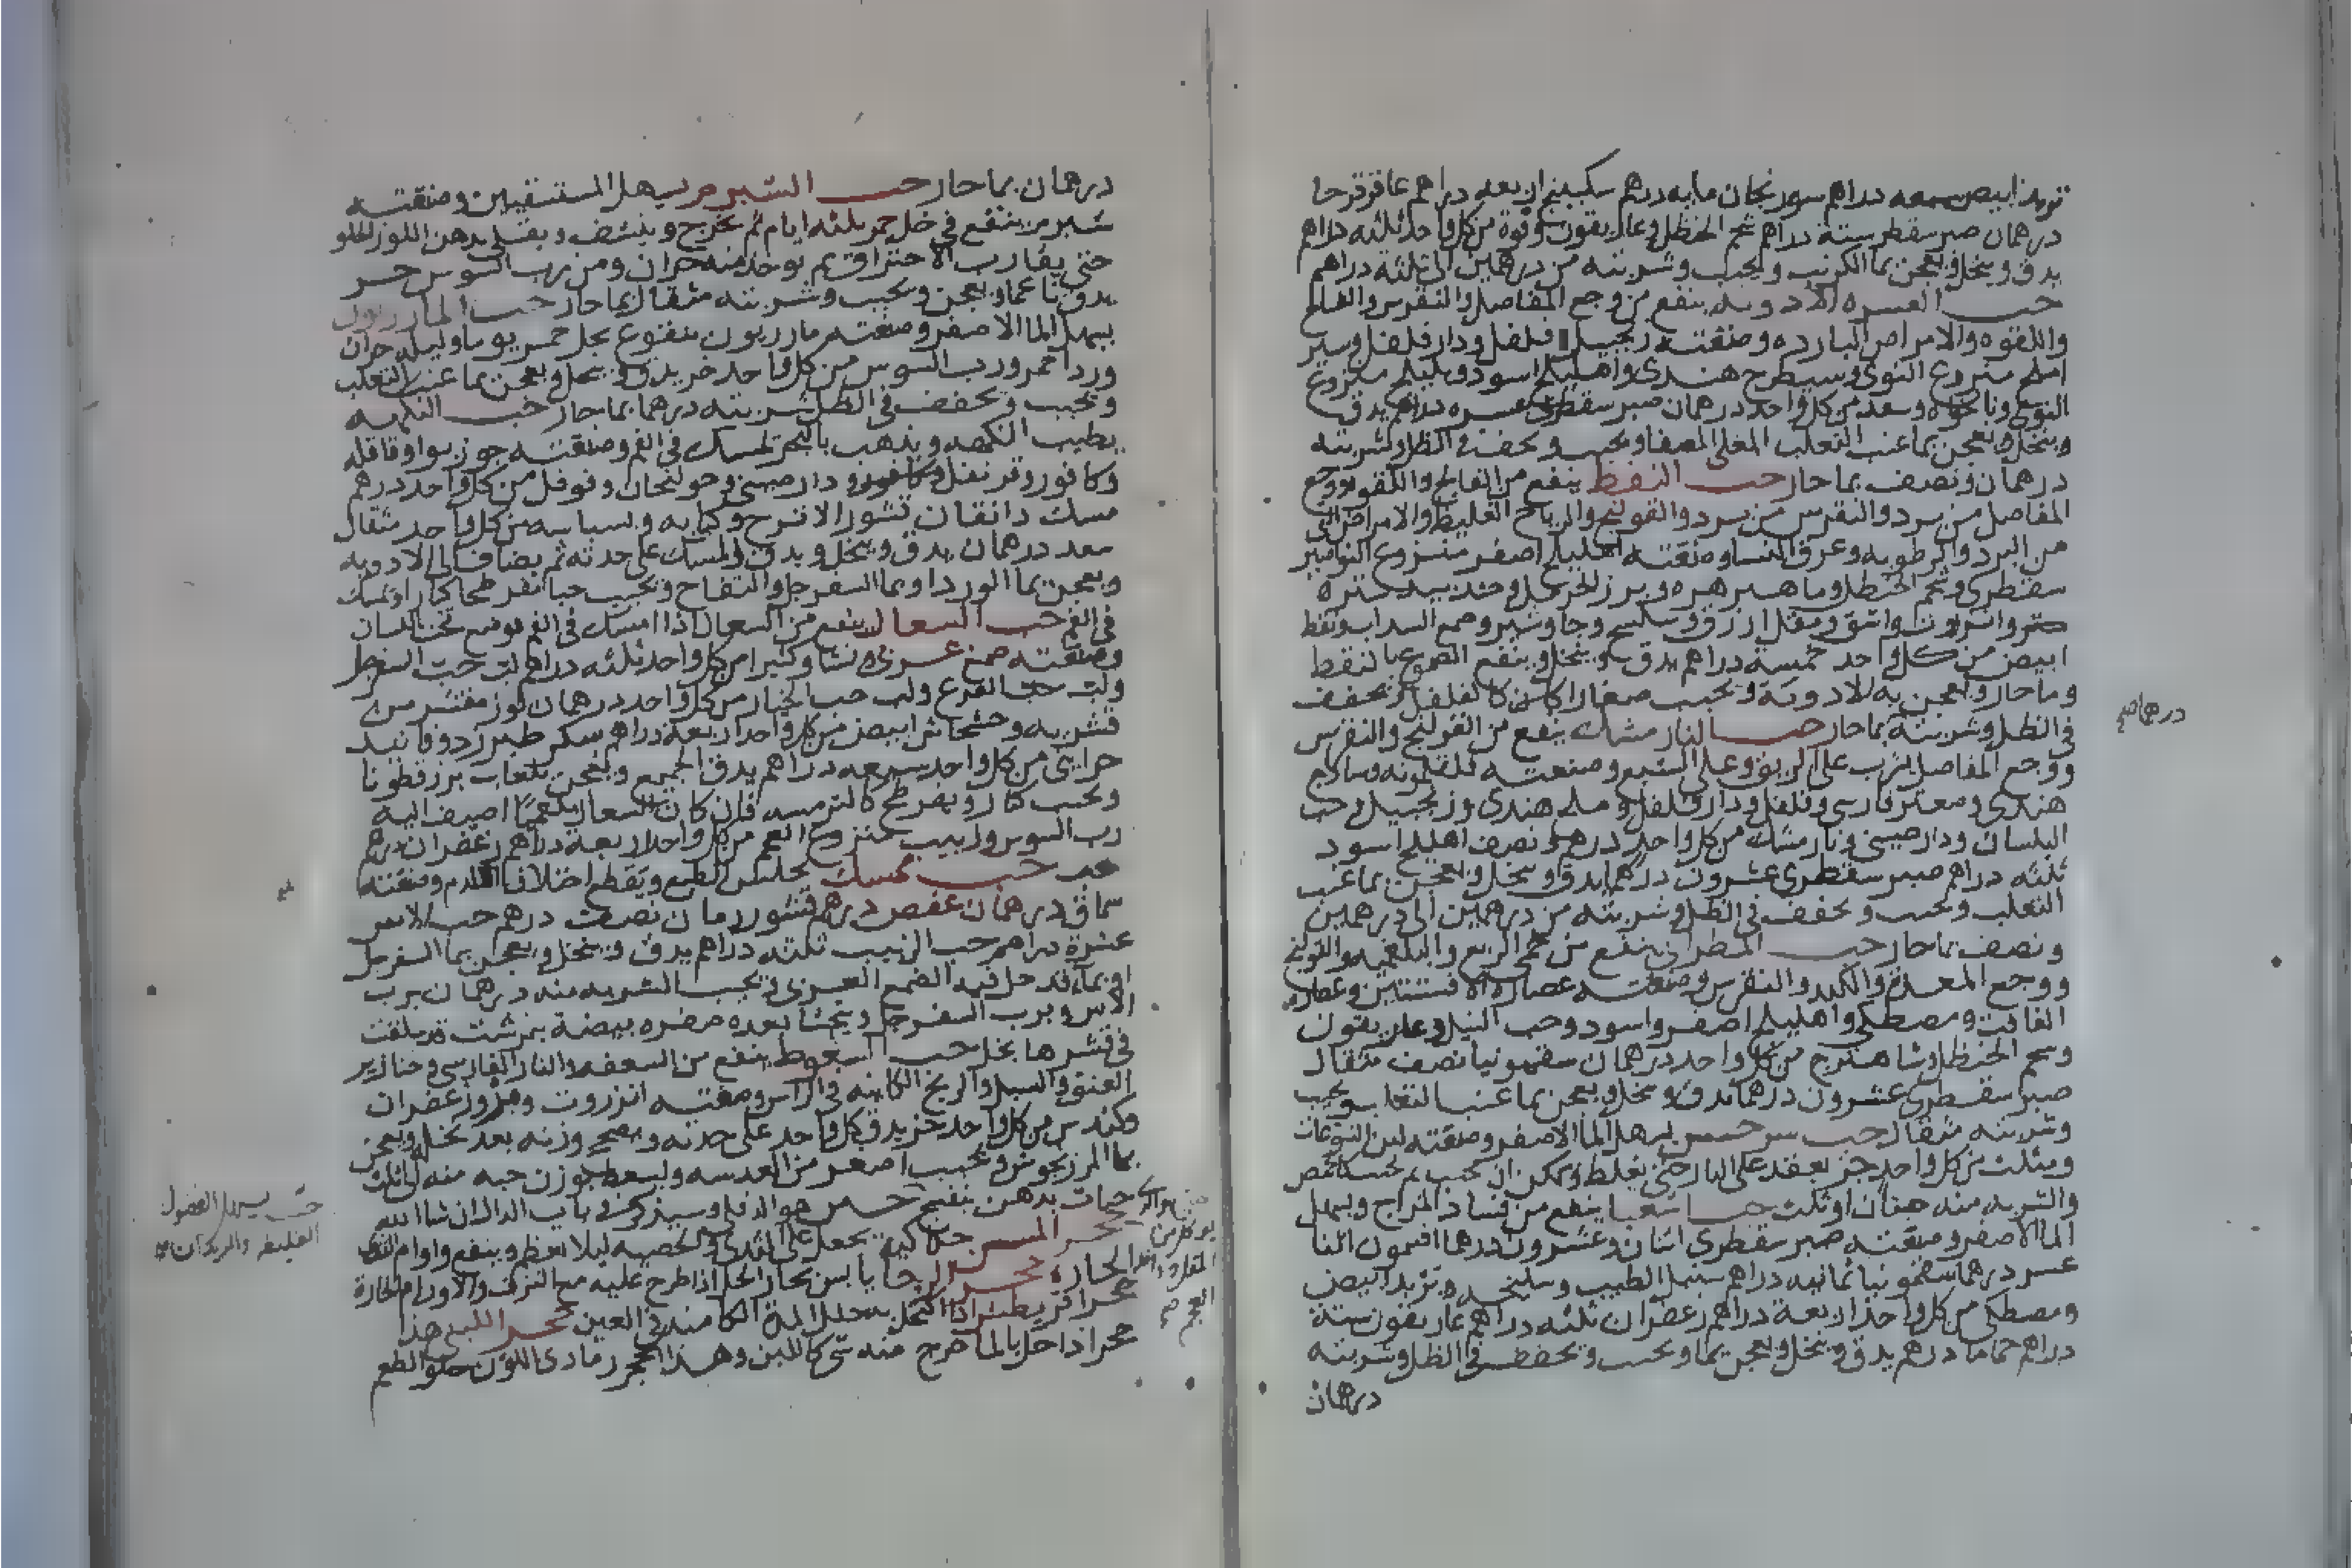 تربد ابيض سبعه دراهم سورنجان مايه درهم سكبينج اربعه دراهم عاقرقرحا
درهمان صبر سقطرى ستة دراهم شحم الحنظل وغاريقون وفوة من كل واحد ثلثه دراهم
يدق وينخل ويعجن بما الكرنب ويحبب وشربته من درهمين الى ثلثة دراهم
حب العشره الادويه ينفع من وجع المفاصل والنقرس والفالج
واللقوه والامراض البارده وصنعته زنجبيل فلفل ودار فلفل وشير
املج منزوع النوى وشيطرج هندى واهليلج اسود وبليلج منزوع
النوى ونانخواه وسعد من كل واحد درهمان صبر سقطرى عشره دراهم يدق
وينخل ويعجن بما عنب الثعلب المغلى المصفا ويحبب ويجفف فى الظل وشربته
درهمان ونصف بما حار حب النفط ينفع من الفالج واللقوه ووجع
المفاصل من برد والنقرس من برد والقولنج والرياح الغليظه والامراض التى
من البرد والرطوبه وعرق النسا وصنعته اهليلج اصفر منزوع النوى صبر
سقطرى وشحم الحنظل وماهيزهره وبزر الحرمل وجندبيدستره
وانزروت واشق ومقل ازرق وسكبينج وجاوشير وصمغ السداب ونفط
ابيض من كل واحد خمسة دراهم يدق وينخل وينقع الصموغ بالنفط
وما حار ويعجن به الادوية ويحبب صغارا كالفلفل ويجفف
فى الظل وشربته بما حار حب النارمشك ينفع من القولنج والنقرس
ووجع المفاصل يشرب على الريق وعلى الشبع وصنعته قلقلمونه وساذج
هندى وصعتر فارسى وفلفل ودار فلفل وملح هندى وزنجبيل وحب
البلسان ودارصينى ونارمشك من كل واحد درهم ونصف اهليلج اسود
ثلثه دراهم صبر سقطرى عشرون درهما يدق وينخل ويعجن بما عنب
الثعلب ويحبب ويجفف فى الظل وشربته من درهمين الى درهمين
ونصف بما حار حب ينفع من حمى الربع والبلغميه والقولنج
ووجع المعدة والكبد والنقرس وصنعته عصارة الافسنتين وعصاره
الغافت ومصطكى واهليلج اصفر واسود وحب النيل وغاريقون
وشحم الحنظل وشاهترج من كل واحد درهمان سقمونيا نصف مثقال
صبر سقطرى عشرون درهما يدق وينخل ويعجن بما عنب الثعلب ويحبب
وشربته مثقال حب يسهل الما الاصفر وصنعته لبن اليتوعات
ومثلث من كل واحد جز يعقد على النار حتى يغلظ ويمكن ان يحبب ثم يحبب كالحمص
والشربه منه حبتان او ثلث حب ينفع من فساد المزاج ويسهل
الما الاصفر وصنعته صبر سقطرى اثنان وعشرون درهما افتيمون اثنا
عشر درهما سقمونيا ثمانيه دراهم سنبل الطيب وسليخه وتربد ابيض
ومصطكى من كل واحد اربعة دراهم زعفران ثلثه دراهم غاريقون ستة
دراهم حماما درهم يدق وينخل ويعجن بما ويحبب ويجفف فى الظل وشربته
درهمان
درهمان بما حار حب الشبرم يسهل المستسقيين وصنعته
شبرم ينقع فى خل خمر ثلثه ايام ثم يخرج وينشف ويقلى بدهن اللوز الحلو
حتى يقارب الاحتراق ثم يوخذ منه جزان ومن رب السوس جز
يدق ناعما ويعجن ويحبب وشربته مثقال بما حار حب المازريون
يسهل الما الاصفر وصنعته مازريون منقوع بخل خمر يوما وليله جزان
ورد احمر ورب السوس من كل واحد جز يدق وينخل ويعجن بما عنب الثعلب
ويحبب ويجفف فى الظل شربته درهما بما حار حب النكهه
يطيب النكهه ويذهب بالبخر تمسك فى الفم وصنعته جوزبوا وقاقله
وكافور وقرنفل ودارصينى وخولنجان وفوفل من كل واحد درهم
مسك دانقان قشور الاترج وكبابه وبسباسه من كل واحد مثقال
سعد درهمان يدق وينخل ويدق المسك على حدته ثم يضاف الى الادويه
ويعجن بما الورد او بما السفرجل والتفاح ويحبب حبا مفرطحا كبارا ويمسك
فى الفم حب السعال ينفع من السعال اذا امسك فى الفم يوضع تحت اللسان
وصنعته صمغ عربى ونشا وكثيرا من كل واحد ثلثه دراهم لب حب السفرجل
ولب حب القرع ولب حب الخيار من كل واحد درهمان لوز مقشر من
قشريه وخشخاش ابيض من كل واحد اربعة دراهم سكر طبرزد وفانيد
خزاينى من كل واحد سبعه دراهم يدق الجميع ويعجن بلعاب بزرقطونا
ويحبب كبار ويفرطح كالترمسه فان كان السعال بلغميا اضيف اليه
رب السوس وزبيب منزوع العجم من كل واحد اربعة دراهم زعفران درهم
حب ممسك يحبس الطبع ويقطع اختلاف الدم وصنعته
سماق درهمان عفص درهم قشور رمان نصف درهم حب الاس
عشرة دراهم حب الزبيب ثلثه دراهم يدق وينخل ويعجن بما السفرجل
او بما قد حل فيه الصمغ العربى ويحبب الشربه منه درهمان برب
الاس وبرب السفرجل ويحشا بعده صفره بيضة نيمرشت قد سلقت
فى قشرها بخل حب السعوط ينفع من السعفه والنار الفارسى وخنازير
العنق والسبل والريح الكاينه فى الراس وصنعته انزروت ومر وزعفران
وكندس من كل واحد جز يدق كل واحد على حدته ويصحح وزنه بعد نخله ويعجن
بما المرزنجوش ويحبب اصغر من العدسه ويسعط بوزن حبه منه الى ثلث
حبات بدهن بنفسج هو الدفلى وسيذكر فى باب الدال ان شا الله
حجر المسن حكاكته يجعل على الثدى والخصيه ليلا يعظم وينفع واورام الثدى
الحاره حجر الرحا يابس بخار الخل اذا طرح عليه منع النزف والاورام الحارة
حجر افريطش اذا اكتحل به حلل المدة الكامنة فى العين حجر اللبنى هذا
حجر اذا حل بالما خرج منه شى كاللبن وهذا الحجر رمادى اللون حلو الطعم
درهمان صح
حب يسهل الفضول
الغليظه والديدان